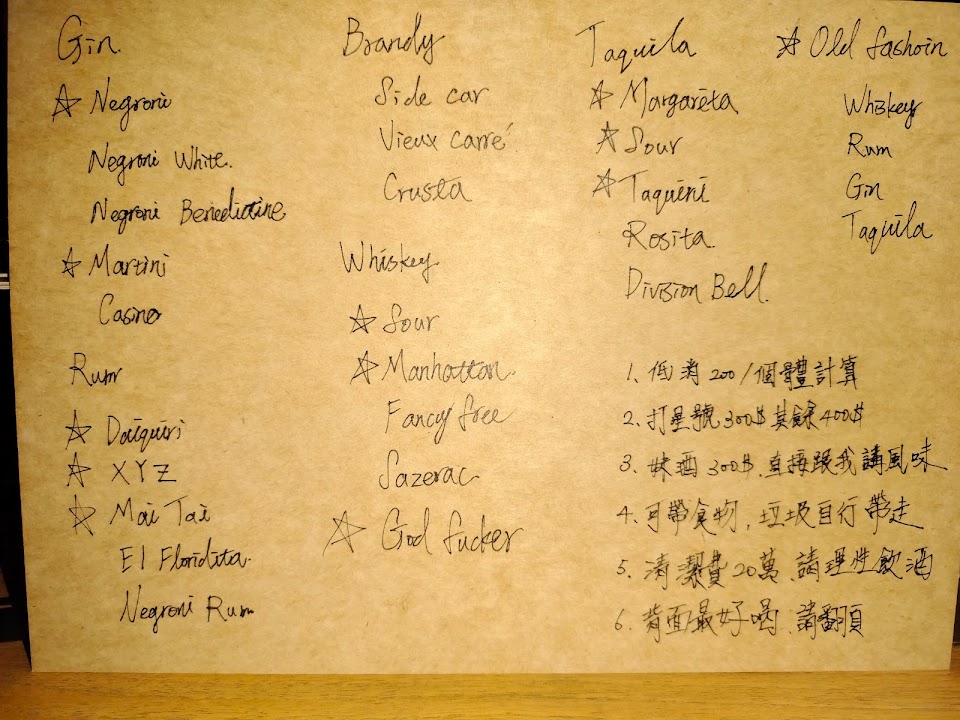 Gin.
☆ Negroni
Negroni White.
Negroni Benedictine
☆ Martini
Casino
Rum
☆ Daiquiri
☆ XYZ
☆ Mai Tai
El Floridita.
Negroni Rum
Brandy
Side car
Vieux carré
Crusta
Whiskey
☆ Sour
☆ Manhattan.
Fancy free
Sazerac
☆ God fucker
Taquila
☆ Margareta
☆ Sour
☆ Taquini
Rosita
Division Bell.
☆ Old fashoin
Whiskey
Rum
Gin
Taquila
1. 低消200/個體計算
2. 打星號300$其餘400$
3. 妹酒300$.直接跟我講風味
4. 可帶食物,垃圾自行帶走
5. 清潔費20萬、請理性飲酒
6. 背面最好喝、請翻頁